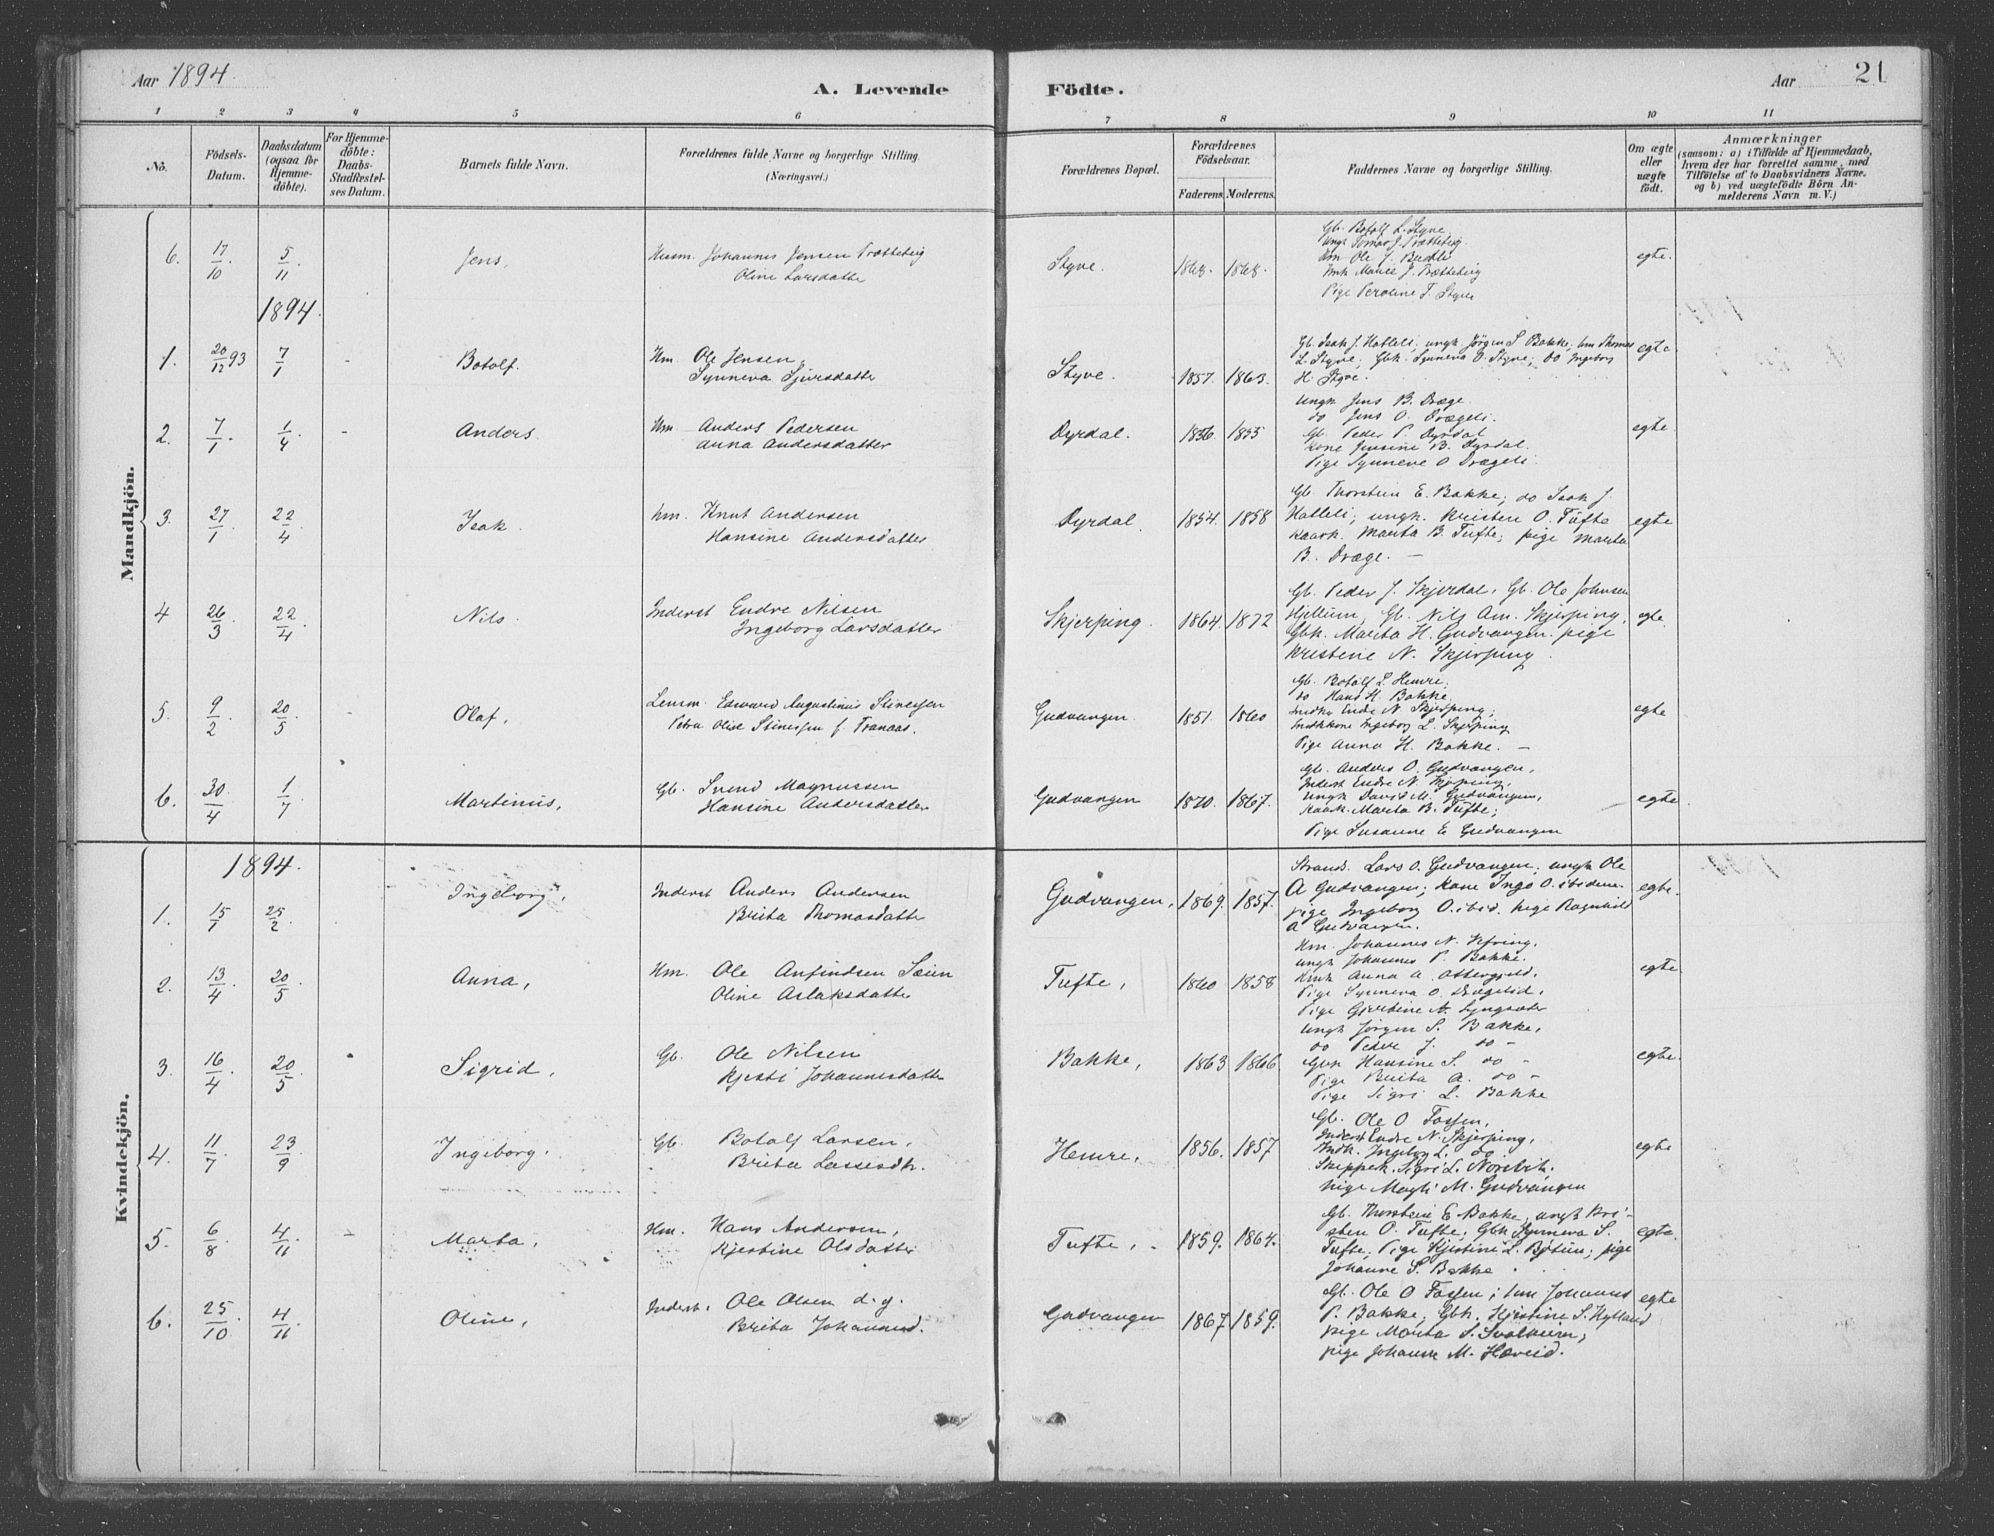 Aar 1894.
A. Levende Födte.
Aar 21
1 2 3 4 5 6 7 8 9 10 11
No.
Födsels-Datum.
Daabsdatum (ogsaa för Hjemme-döbte).
For Hjemme-döbte: Daabs-Stadfæstel-ses Datum.
Barnets fulde Navn.
Forældrenes fulde Navne og borgerlige Stilling. (Næringsvei.)
Forældrenes Bopæl.
Forældrenes Födselsaar.
Faderens. Moderens.
Faddernes Navne og borgerlige Stilling.
Om ægte eller uægte födt.
Anmærkninger
(saasom: a) i Tilfælde af Hjemmedaab, hvem der har forrettet samme, med Tilföielse af to Daabsvidners Navne, og b) ved uægtefödte Börn An-melderens Navn m. V.)
Mandkjön.
6. 17/10 5/11 Jens, Husm. Johannes Jensen Trætteteig
Oline Larsdatter
Styve. 1868. 1868.
Gb. Botolf L. Styve
Ungk. Tomas J. Trætteteig
Hm. Ole J.
Pige Peroline T. Styve
egte.
1894.
1. 20/12 93 7/1 - Botolf. Hm. Ole Jensen,
Synneva Sjursdatter
Styve. 1857. 1863.
Gb. Isak J. Hatleli, ungk. Jörgen S. Bakke, hm Thomas
L. Styve, Gbk. Synneva O. Styve, do Ingeborg
H. Styve.
egte
2. 7/1. 1/4 - Anders. Hm Anders Pedersen
Anna Andersdatter
Dyrdal. 1856. 1855
Ungk Jens B. Dræge.
do Jens O. Drægeli.
Gb. Peder P. Dyrdal
Kone Jensine B. Dyrdal.
Pige Synneve O Drægeli.
egte
3. 27/1 22/4 Isak. hm. Knut Andersen
Hansine Andersdatter
Dyrdal 1854. 1858
Gb. Thorstein E. Bakke; do Isak J.
Hatleli; ungk. Kristen O. Tufte
Kaark. Marita B. Tufte, pige Marita
B. Dræge. —
egte
4 26/3 22/4 Nils. Inderst Endre Nilsen
Ingeborg Larsdatter
Skjerping. 1864. 1872
Gb. Peder J. Skjerdal, Gb. Ole Johnsen
Hyllum, Gb. Nils Am. Skjerping,
Gbk. Marita H. Gudvangen. pige
Kristine N. Skjerping.
egte.
5. 9/2 20/5 Olaf, Lensm. Edvard Augustinus Stinesen
Petra Olise Stinessen f. Tranaas.
Gudvangen. 1851. 1860
Gb. Botolf L. Hemre,
do Hans H. Bakke,
Indks Endre N. Skjerping;
Indkkone Ingeborg L. Skjerping
Pige Anna H. Bakke. —
egte
6. 30/4 1/7 Martinus, Gb. Svend Magnussen
Hansine Andersdatter
Gudvangen 1870. 1867.
Gb. Anders O. Gudvangen,
Inderst Endre N. Skjerping,
Ungk David M. Gudvangen,
Kaark. Marita B. Tufte;
Pige Susanne E Gudvangen
egte
Kvindekjön.
1894.
1. 15/1 25/2. Ingeborg, Inderst Anders Andersen
Brita Thomasdatter
Gudvangen, 1869. 1857.
Strand. Lars O. Gudvangen, ungk Ole
A Gudvangen; Kone Inga O. ibidem
pige Ingeborg O. ibid. pige Ragnhild
A Gudvangen.
egte.
2. 13/4 20/5 Anna, Hm. Ole Anfindsen Sæim
Oline Aslaksdatter
Tufte, 1860 1858
Hm. Johannes N.
ungk Johannes P. Bakke.
Anna A.
Pige Synneva O.
Pige Gjertine N.
egte
3. 16/4 20/5 Sigrid, Gb. Ole Nilsen
Kjesti Johannesdatter
Bakke, 1863 1866
ungk Jørgen S. Bakke,
do Peder J. do -
Gbk Hansine S. do -
Pige Brita A. do -
Pige Sigri L. Bakke
egte.
4. 11/7 23/9 Ingeborg. Gb. Botolf Larsen,
Brita Lassesdtr.
Hemre, 1856. 1857
Gb. Ole O Fossen,
Inderst Endre N. Skjerping,
Indk. Ingeborg L. do
Skippek. Sigri L.
pige Magli M. Gudvangen
egte
5. 6/8 4/11 - Marta, Hm. Hans Andersen,
Kjerstine Olsdatter
Tufte, 1859. 1864.
Gb. Thorstein E Bakke, ungk Kri-
sten O. Tufte, Gbk Synneva S.
Tufte, Pige Kjerstine L. Bøtun; pige
Johanne S. Bakke.
egte.
6. 25/10 4/11 Oline, Inderst. Ole Olsen d. y.
Brita Johannesd.
Gudvangen 1867 1859.
Gb. Ole O Fossen; hm Johannes
P. Bakke, Gbk. Kjerstine S. Hylland
pige Marita S. Svalheim,
pige Johanne M.
egte